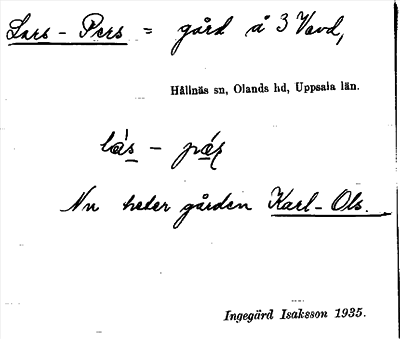 Lars - Pers = gård å 3 Vavd,
Hållnäs sn, Olands hd, Uppsala län.
Nu heter gården Karl - Ols.
Ingegärd Isaksson 1935.